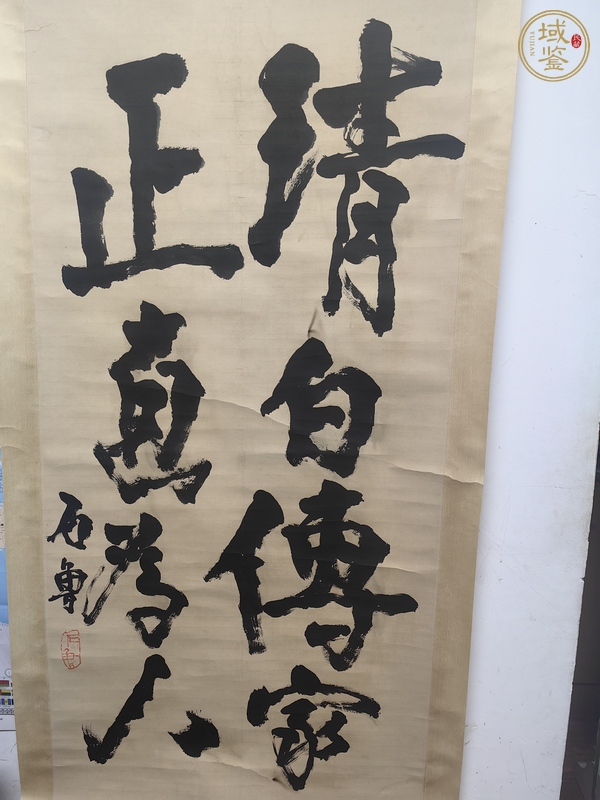 清白傳家
正直為人
石魯
石魯
域鉴
YUJIAN